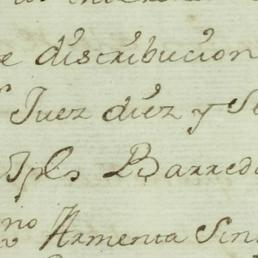 e distribucion
Juez diez y Se
Ipls Barreda
no Armenta Sin